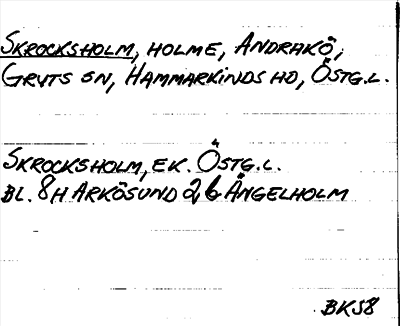 SKROCKSHOLM, HOLME, ANDRAKÖ,
GRYTS SN, HAMMARKINDS HD, ÖSTG.L.
SKROCKSHOLM, EK. ÖSTG.L.
BL. 8H ARKÖSUND 2b ÄNGELHOLM
BK58